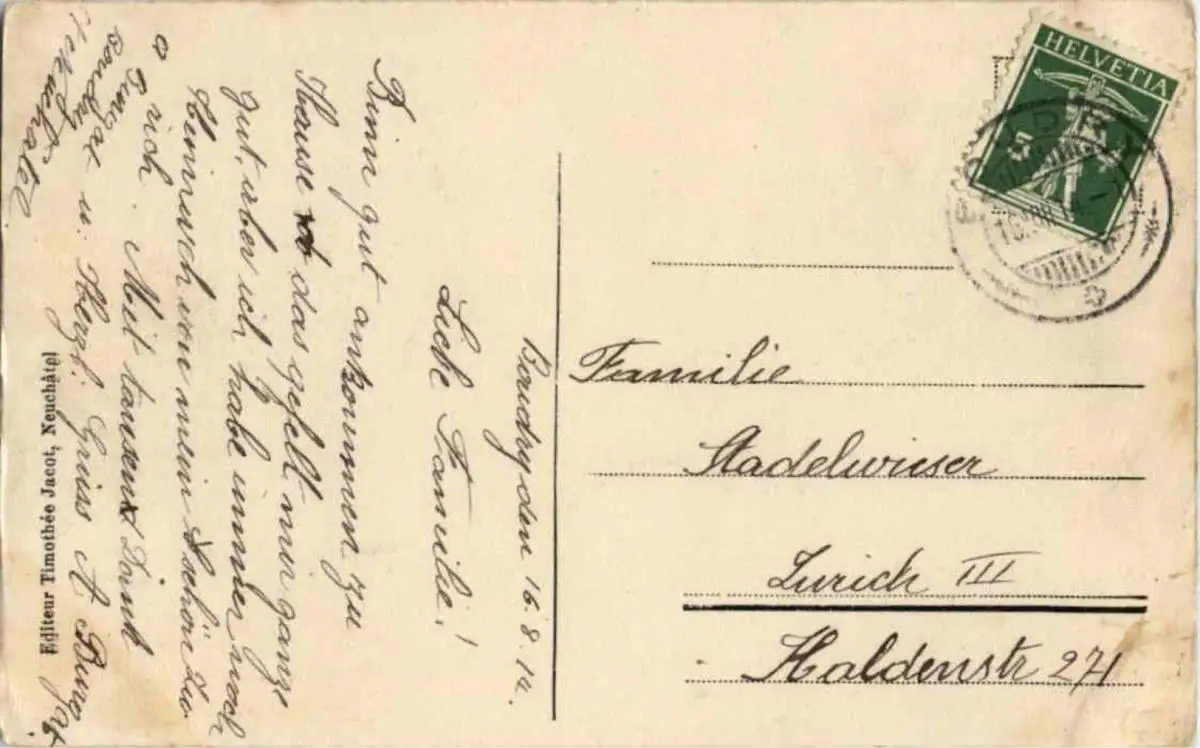 Boudry den 16. 8. 14.
Liebe Familie!
Binn gut ankommen zu
Hause das gefelt mir ganz
gut, aber ich habe immer noch
Heimweh von mein Schön Zü-
rich. Mit tausend Dank
u. Herzl. Grüss A Burgat
Burgat
Boudry
Neuchatel
Familie
Stadelwieser
Zurich III
Haldenstr 271
HELVETIA
5
BOUDRY
Editeur Timothée Jacot, Neuchâtel